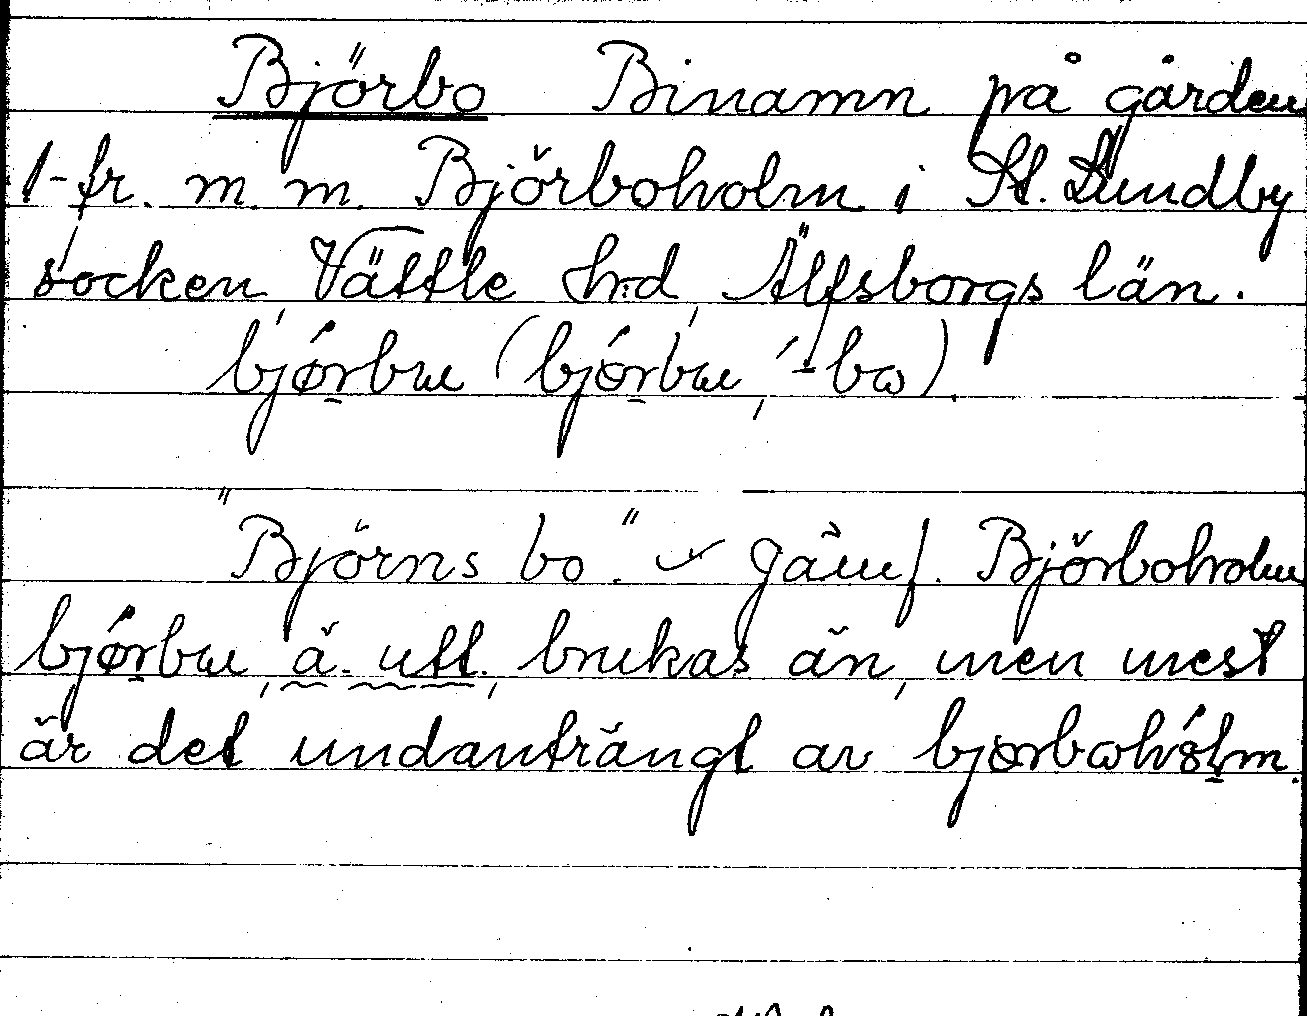 Björbo Binamn på gården
1-fr. m. m. Björboholm i St. Lundby
socken, Vättle hrd, Älfsborgs län.
bjǿrbɯ (bjǿrbɯ, ´-bω).
"Björns bo." Jämf. Björboholm
bjǿrbɯ, ä. utt., brukas än, men mest
är det undanträngt av bjørbωhólm.